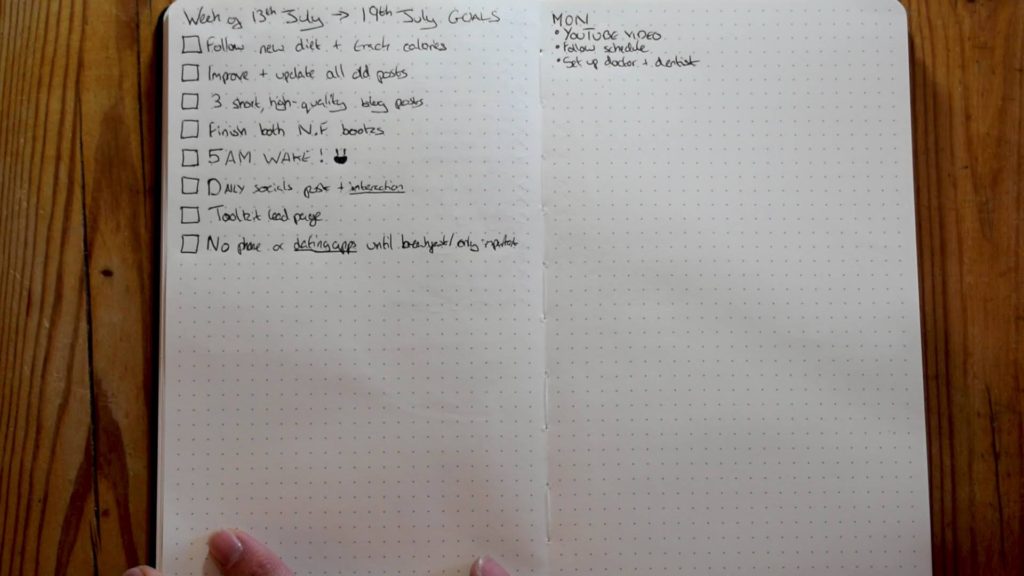 Week of 13th July → 19th July GOALS
Follow new diet + track calories
Improve + update all old posts
3 short, high-quality blog posts
Finish both N.F books
5AM WAKE!
DAILY socials post + interaction
Toolkit lead page
No phone or dating apps until breakfast/only important
MON
• YOUTUBE VIDEO
• Follow schedule
• Set up doctor + dentist